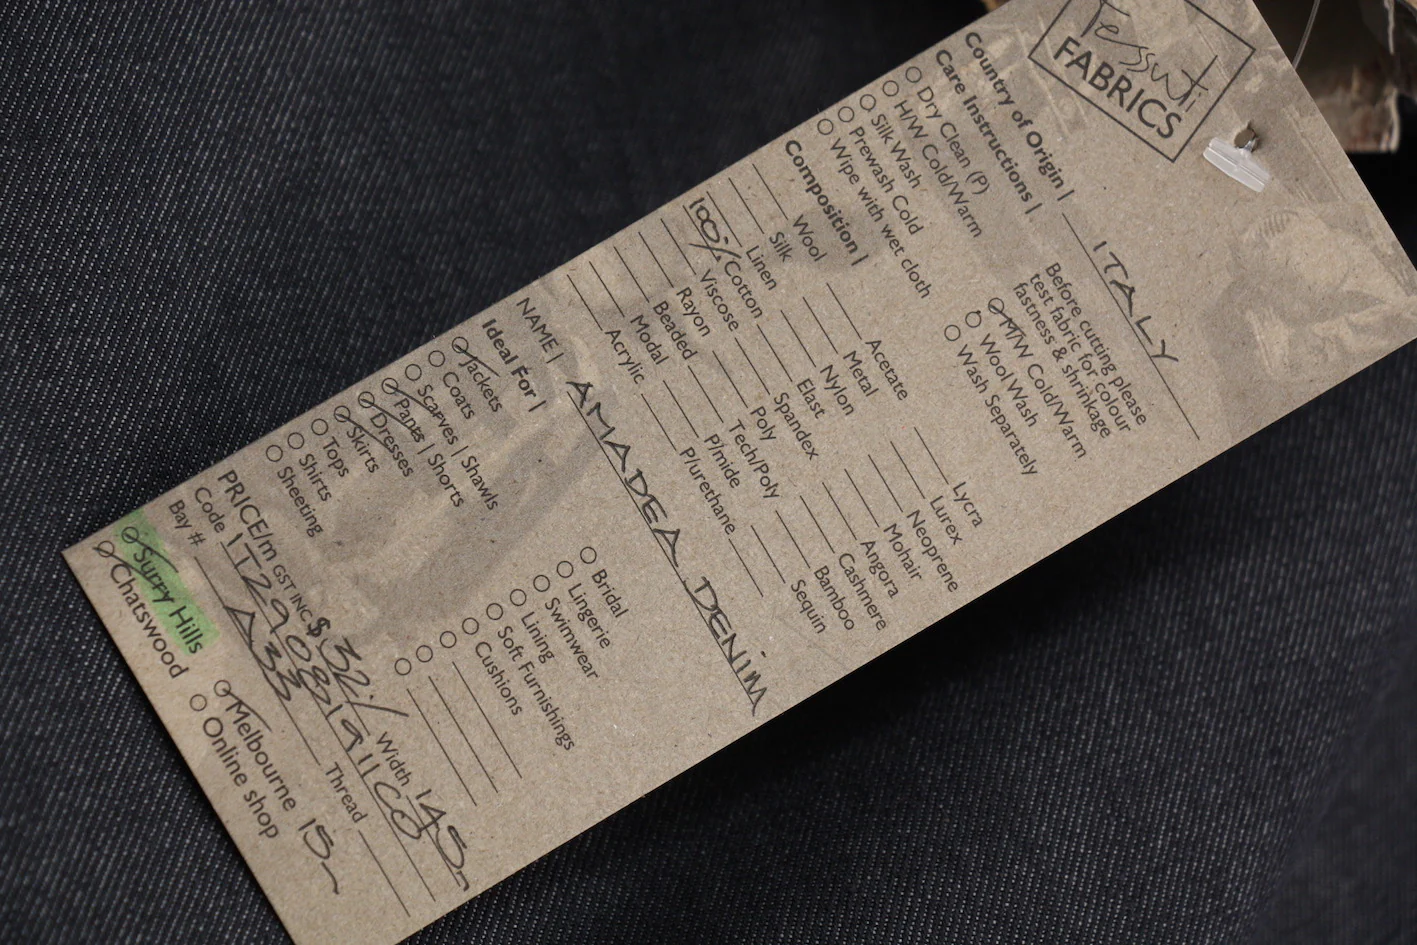 Tessuti
FABRICS
Country of Origin | ITALY
Care Instructions |
Before cutting please
test fabric for colour
fastness & shrinkage
Dry Clean (P)
H/W Cold/Warm
Silk Wash
Prewash Cold
Wipe with wet cloth
M/W Cold/Warm
Wool Wash
Wash Separately
Composition |
Wool Acetate Lycra
Silk Metal Lurex
Linen Nylon Neoprene
100% Cotton Elast Mohair
Viscose Spandex Angora
Rayon Poly Cashmere
Beaded Tech/Poly Bamboo
Modal P/mide Sequin
Acrylic P/urethane
NAME | AMADEA DENIM
Ideal For |
Jackets Bridal
Coats Lingerie
Scarves | Shawls Swimwear
Pants | Shorts Lining
Dresses Soft Furnishings
Skirts Cushions
Tops
Shirts
Sheeting
PRICE/m GST INC $ 32 Width 145
Code
Bay # A33 Thread
Surry Hills Melbourne 15
Chatswood Online shop